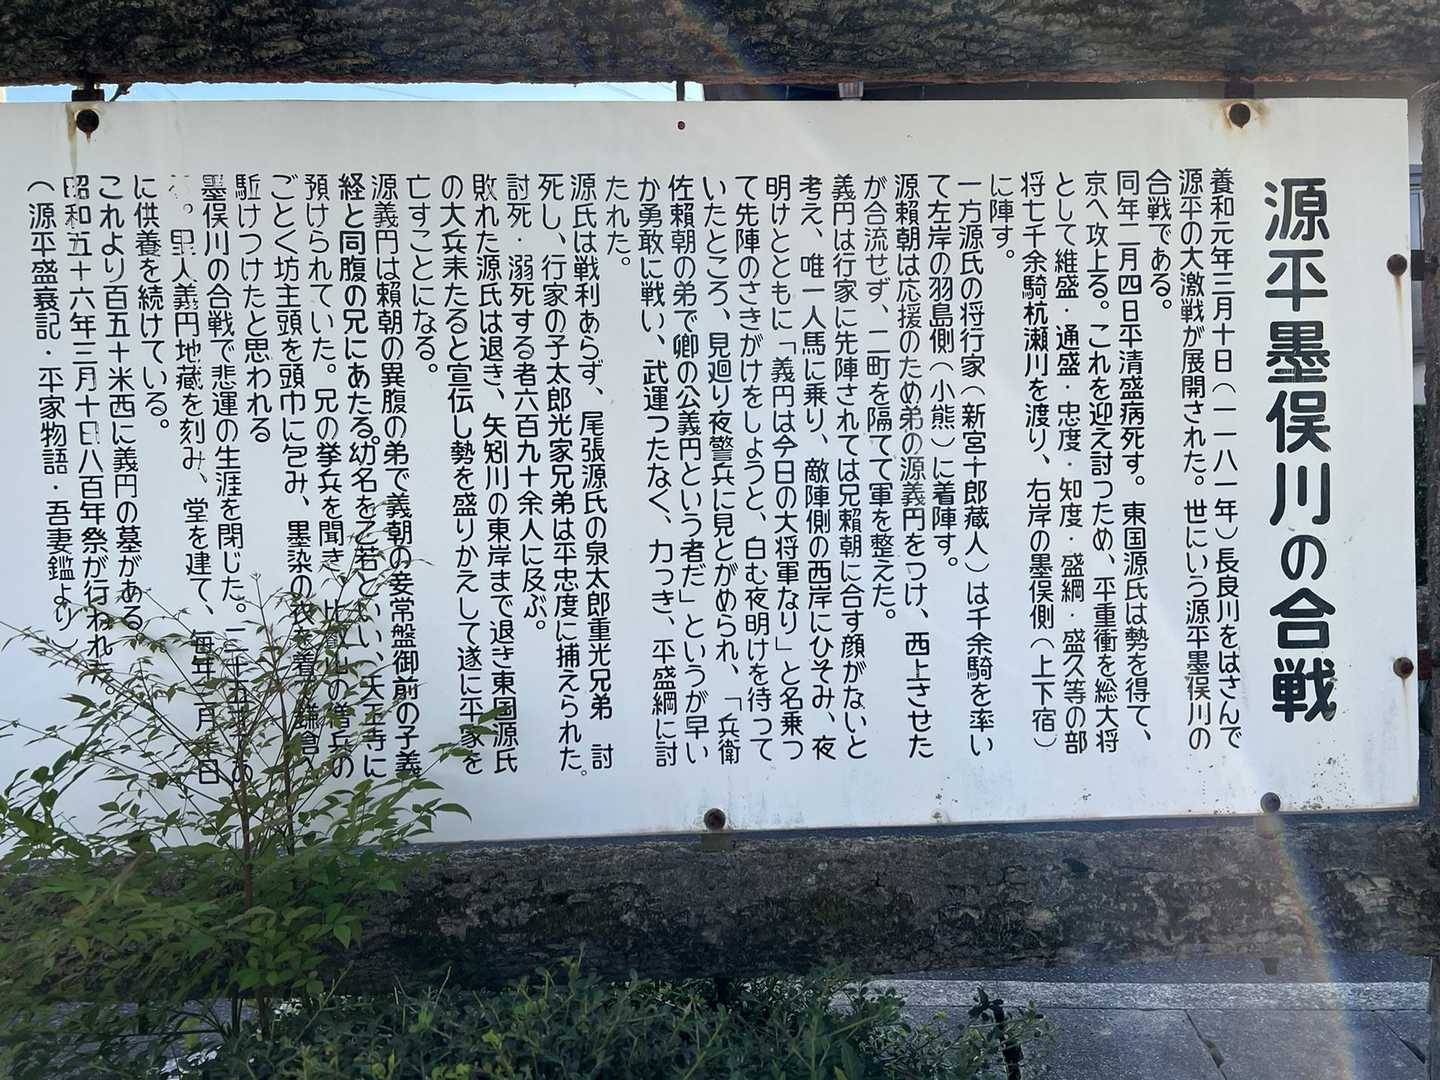 源平墨俣川の合戦
養和元年三月十日(一一八一年)長良川をはさんで
源平の大激戦が展開された。世にいう源平墨俣川の
合戦である。
同年二月四日平清盛病死す。東国源氏は勢を得て、
京へ攻上る。これを迎え討つため、平重衝を総大将
として維盛・通盛・忠度・知度・盛綱・盛久等の部
将七千余騎杭瀬川を渡り、右岸の墨俣側(上下宿)
に陣す。
一方源氏の将行家(新宮十郎蔵人)は千余騎を率い
て左岸の羽島側(小熊)に着陣す。
源頼朝は応援のため弟の源義円をつけ、西上させた
が合流せず、二町を隔てて軍を整えた。
義円は行家に先陣されては兄頼朝に合す顔がないと
考え、唯一人馬に乗り、敵陣側の西岸にひそみ、夜
明けとともに「義円は今日の大将軍なり」と名乗っ
て先陣のさきがけをしようと、白む夜明けを待って
いたところ、見廻り夜警兵に見とがめられ、「兵衛
佐頼朝の弟で卿の公義円という者だ」というが早い
か勇敢に戦い、武運つたなく、力つき、平盛綱に討
たれた。
源氏は戦利あらず、尾張源氏の泉太郎重光兄弟 討
死し、行家の子太郎光家兄弟は平忠度に捕えられた。
討死・溺死する者六百九十余人に及ぶ。
敗れた源氏は退き、矢矧川の東岸まで退き東国源氏
の大兵来たると宣伝し勢を盛りかえして遂に平家を
亡すことになる。
源義円は頼朝の異腹の弟で義朝の妾常盤御前の子義
経と同腹の兄にあたる。幼名を乙若といい、天王寺に
預けられていた。兄の挙兵を聞き 山の僧兵の
ごとく坊主頭を頭巾に包み、墨染の衣を着 鎌倉へ
駈けつけたと思われる
墨俣川の合戦で悲運の生涯を閉じた。二十五才の
。里人義円地蔵を刻み、堂を建て、毎年 月 日
に供養を続けている。
これより百五十米西に義円の墓がある。
昭和五十六年三月十日八百年祭が行われた。
(源平盛衰記・平家物語・吾妻鑑より)